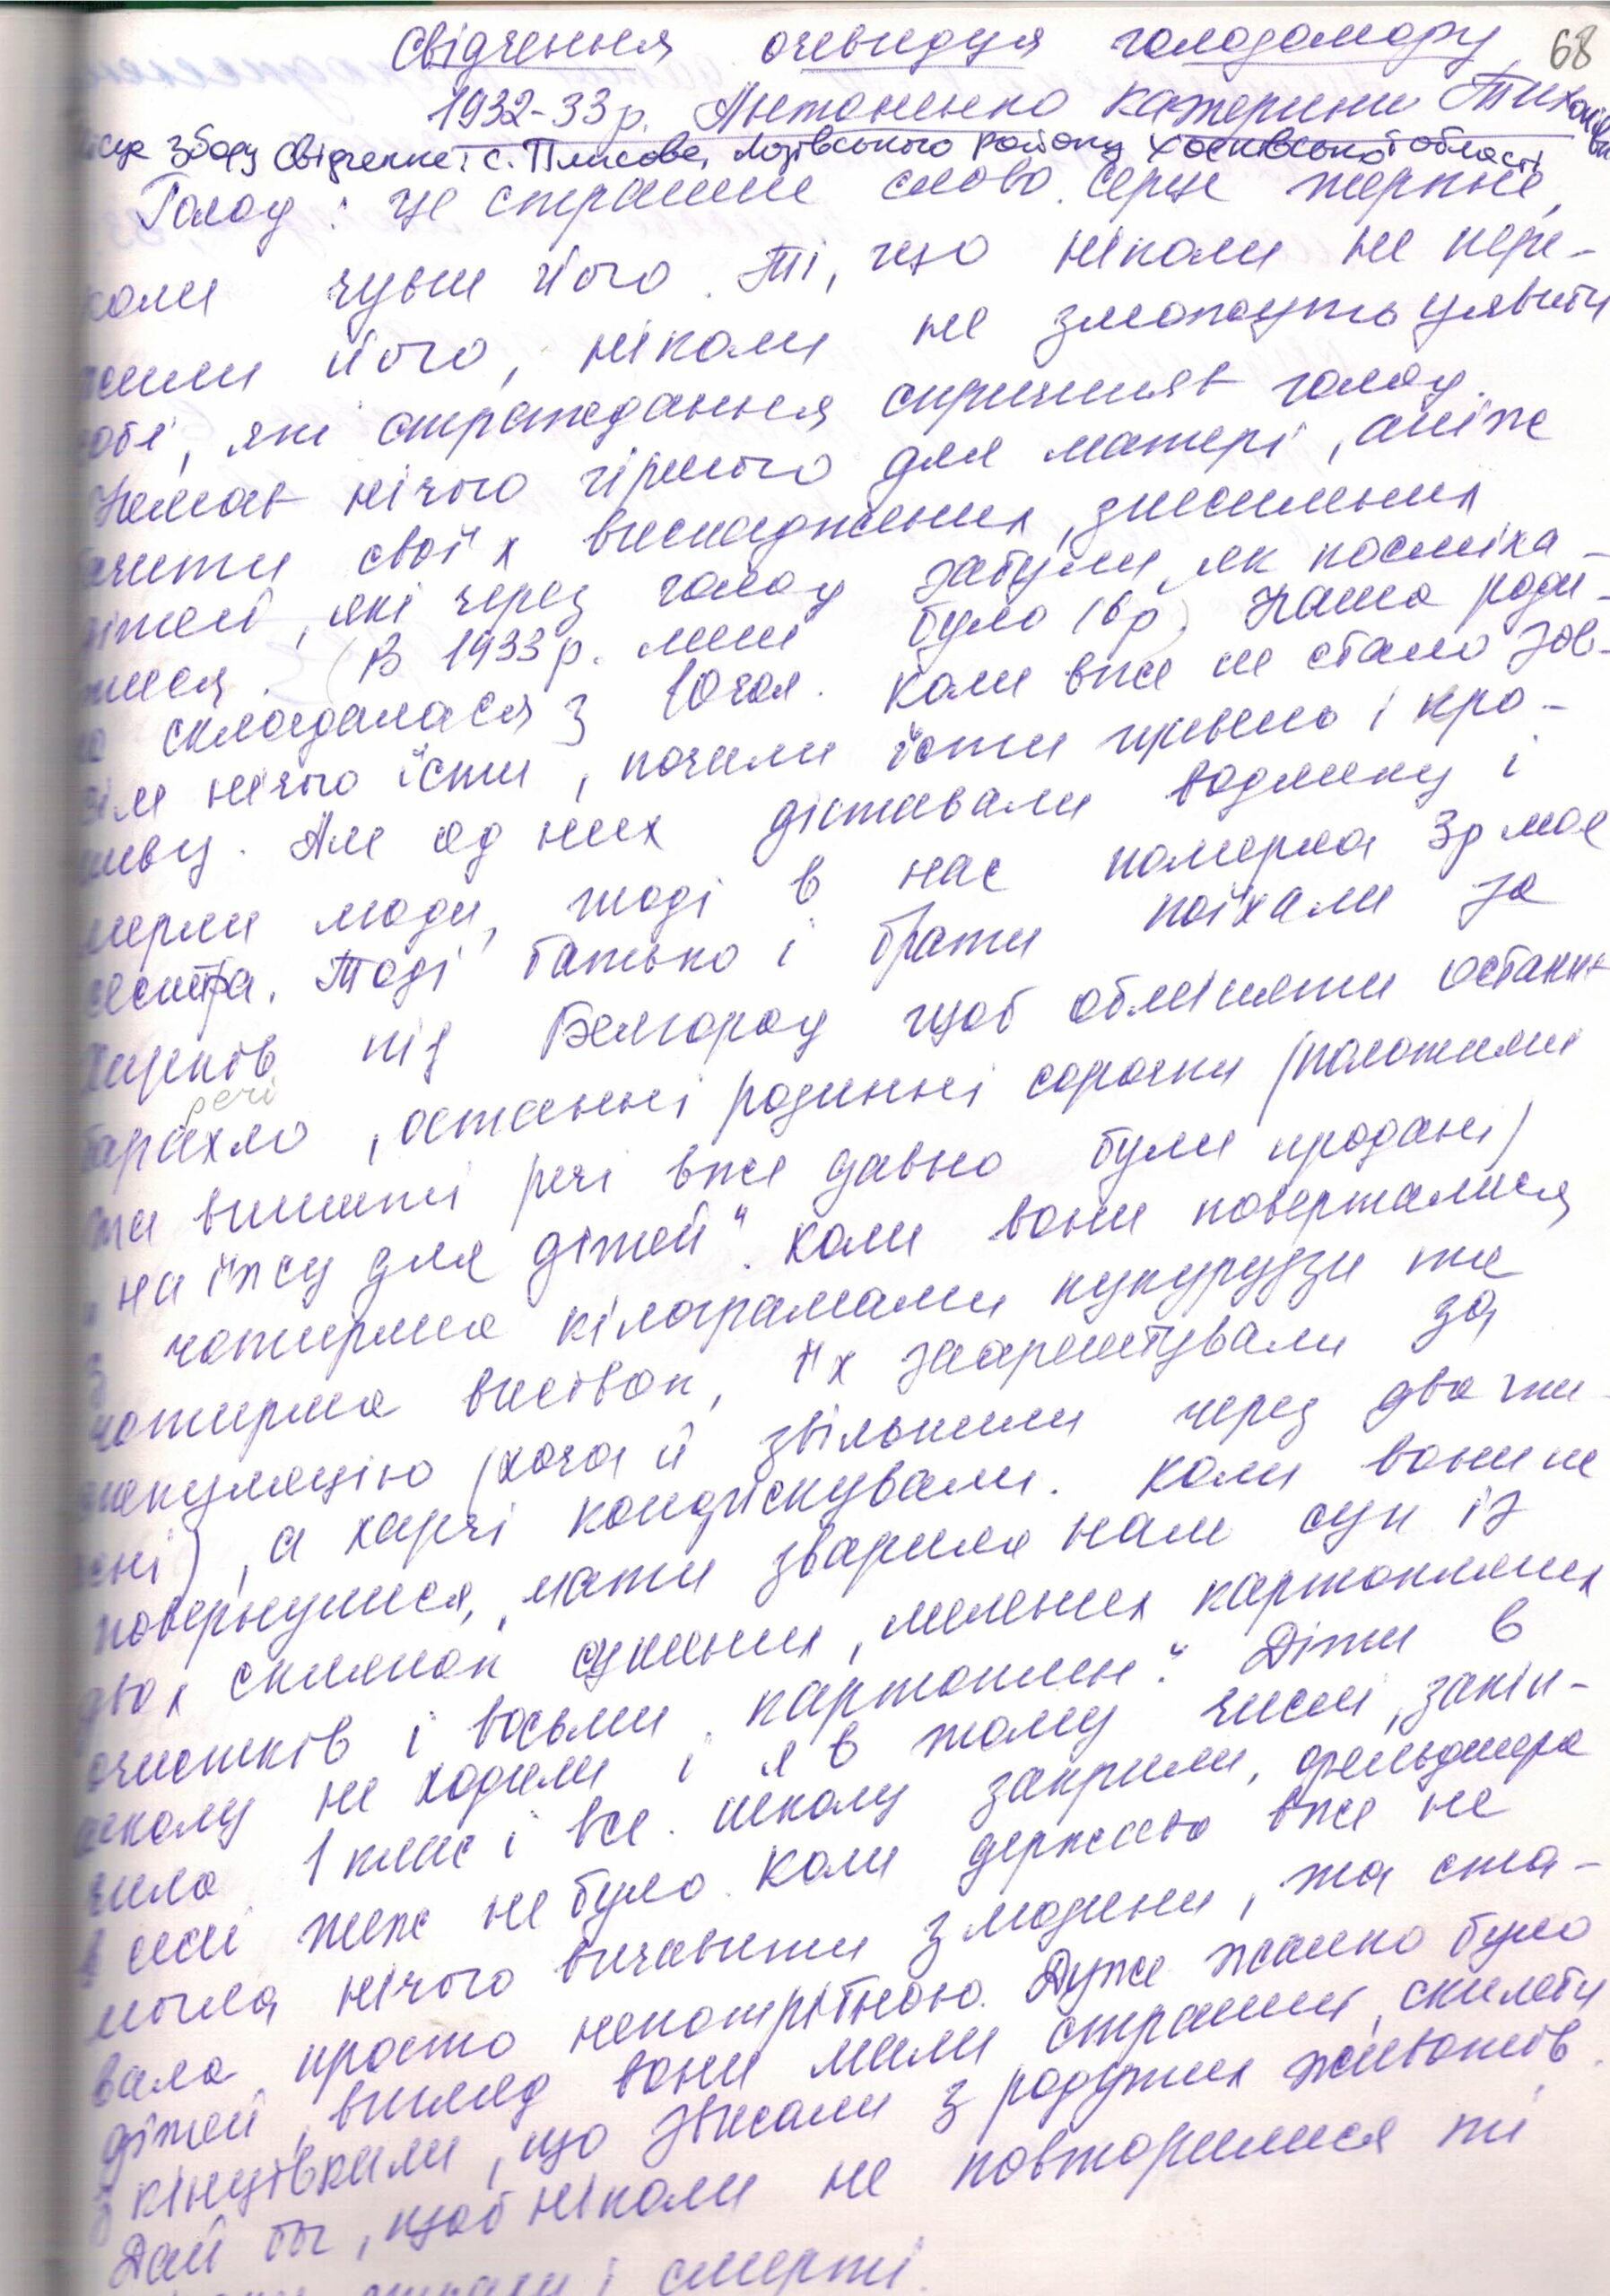 68
Свідчення очевидця голодомору
1932-33р. Антоненко Катерини Тихонівни
місце збору свідчення: с. Плисове, Лозівського району Харківської області
Голод: це страшне слово. Серце терпне,
коли чуєш його. Ті, що ніколи не пере-
жили його, ніколи не зможуть уявити
собі, які страждання спричиняє голод.
Немає нічого гіршого для матері, аніж
бачити своїх виснажених, знесилених
дітей, які через голод забули, як посміха-
тися. (В 1933р. мені було 16р) Наша роди-
на складалася з 10 чол. Коли вже не стало зов-
сім нічого їсти, почали їсти щавель і кро-
пиву. Але од них діставали водянку і
мерли люди, тоді в нас померла 3р моя
сестра. Тоді батько і брати поїхали за
Харків під Белгород щоб обміняти останнє
речі
барахло, останні родинні сорочки (полотняні
та вишиті речі вже давно були продані)
"на їжу для дітей". Коли вони поверталися
з чотирма кілограмами кукурудзи та
чотирма висівок, їх заарештували за
спекуляцію (хоча й звільнили через два ти-
жні), а харчі конфіскували. Коли вони не
повернулися, мати зварила нам суп із
двох склянок сушених, мелених картопляних
очистків і восьми картоплин". Діти в
школу не ходили і я в тому числі, закін-
чила 1 клас і все. Школу закрили, фельдшера
в селі теж не було. Коли держава вже не
могла нічого вичавити з людини, та ста-
вала просто непотрібною. Дуже жалко було
дітей, вигляд вони мали страшний, скилети
з кінцівками, що звисали з роздутих животів.
Дай бог, щоб ніколи не повторилися ті
і смерті.